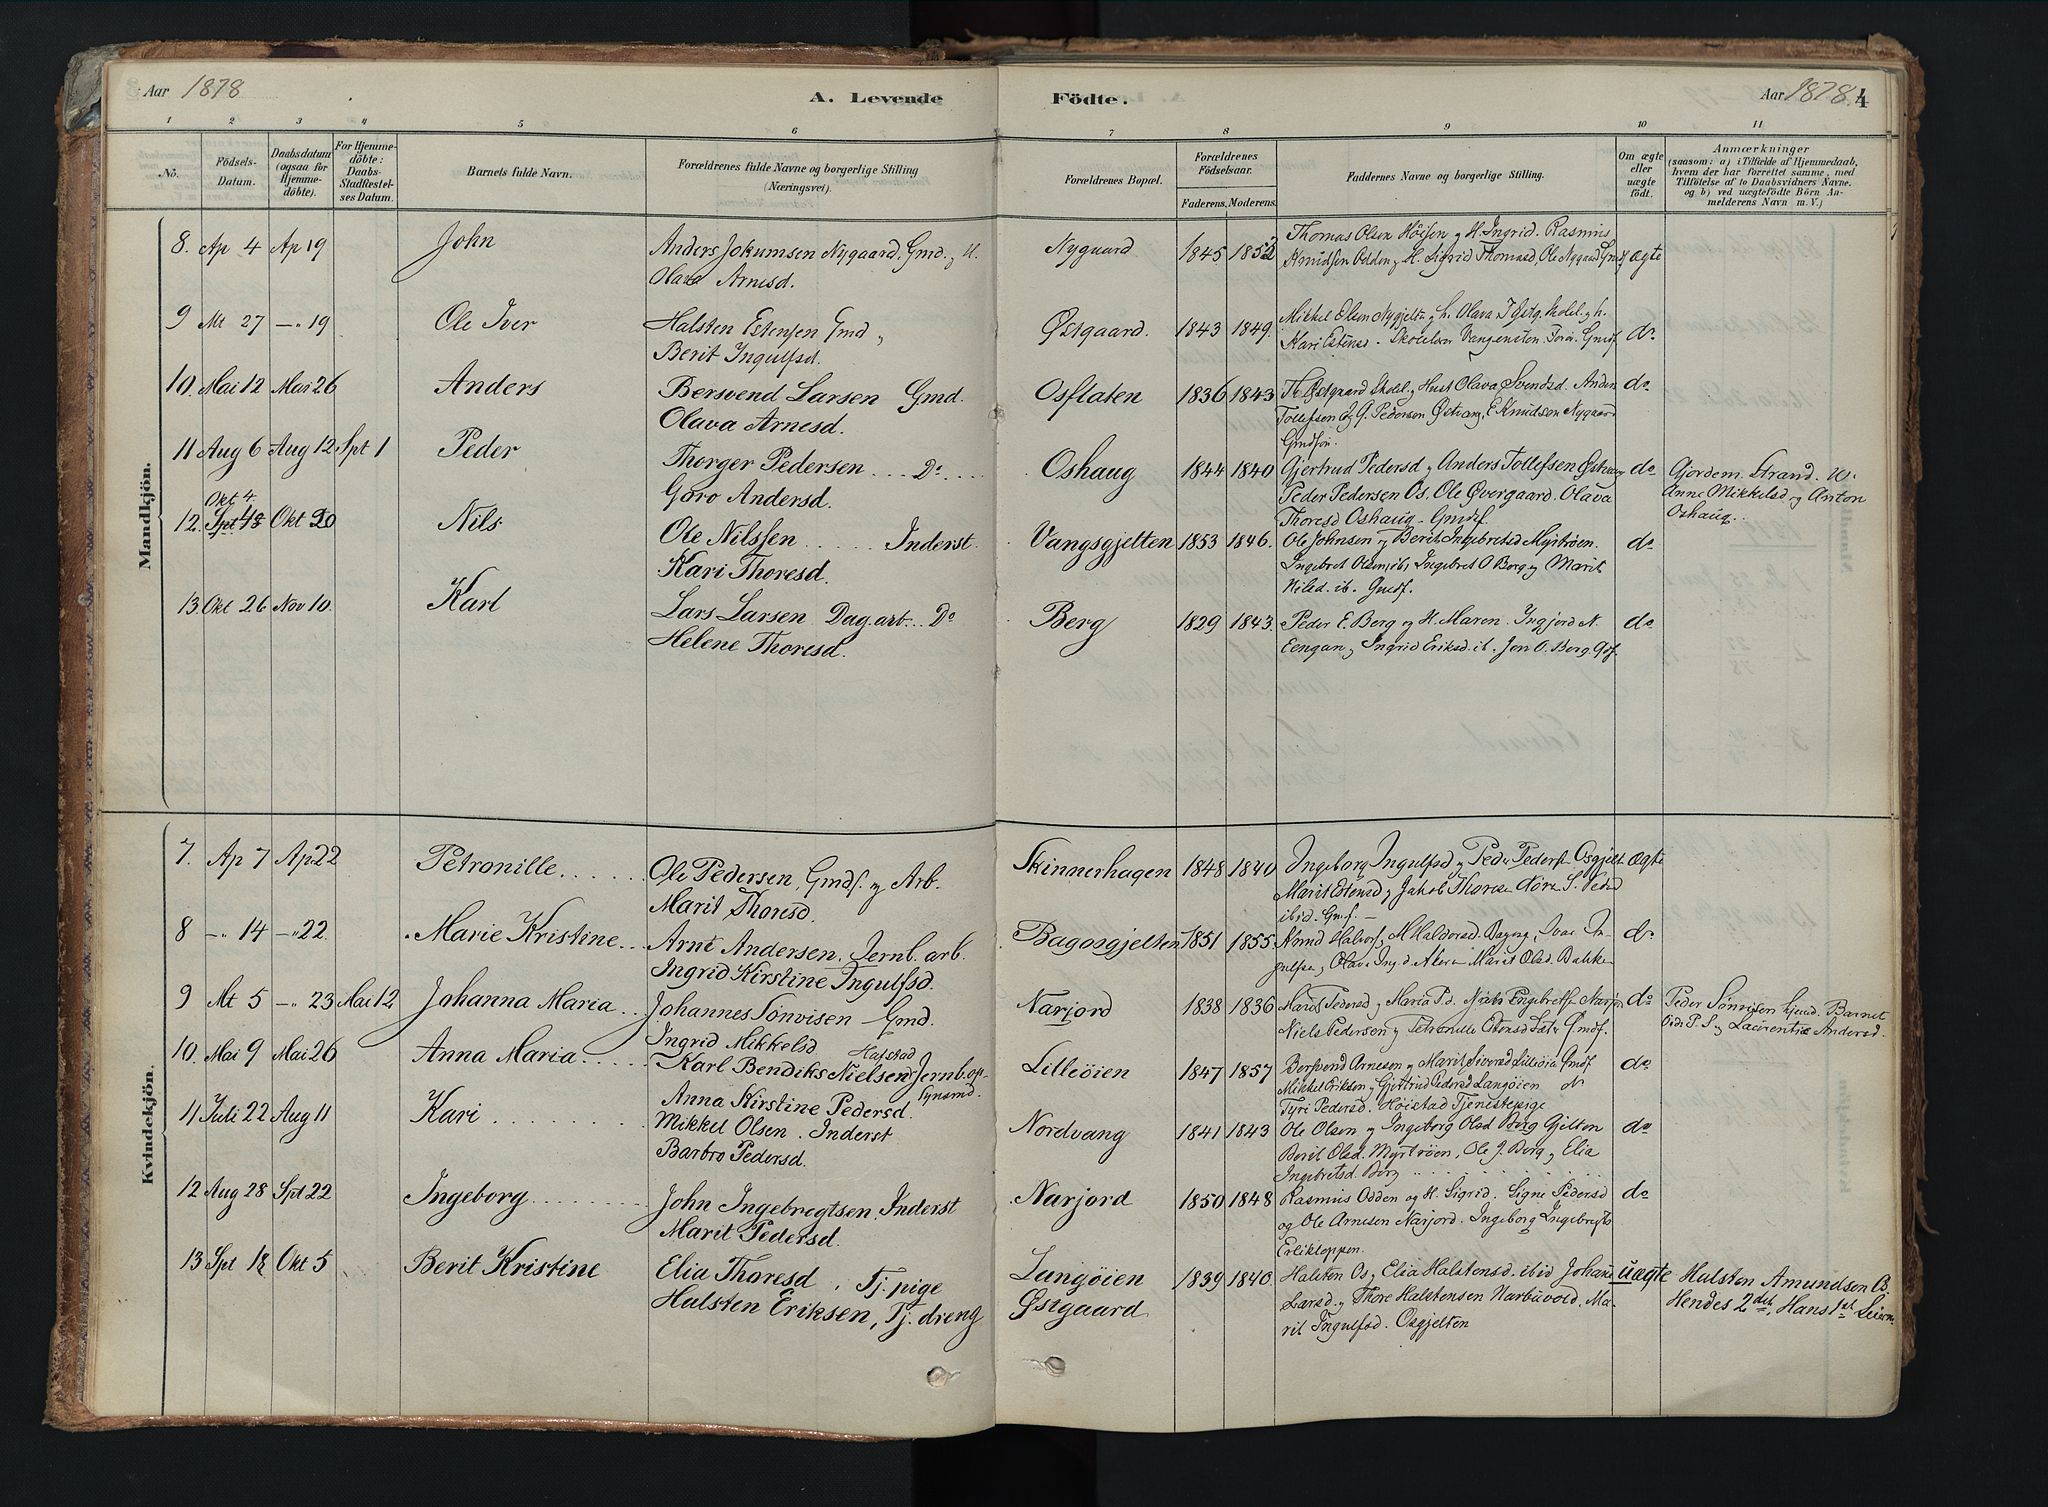 Aar 1878
A. Levende
Födte.
Aar 1878. 4
1 2 3 4 5 6 7 8 9 10 11
No.
Födsels-Datum.
Daabsdatum (ogsaa for Hjemme-döbte).
For Hjemme-döbte: Daabs-Stadfæstel-ses Datum.
Barnets fulde Navn.
Forældrenes fulde Navne og borgerlige Stilling (Næringsvei).
Forældrenes Bopæl.
Forældrenes Födselsaar.
Faderens. Moderens.
Faddernes Navne og borgerlige Stilling.
Om ægte eller uægte födt.
Anmærkninger
(saasom: a) i Tilfælde af Hjemmedaab, hvem der har forrettet samme, med Tilföielse af to Daabsvidners Navne, og b) ved uægtefödte Börn Anmelderens Navn m. V.)
Mandkjön.
8. Ap 4 Ap 19 John
Anders Jokumsen Nygaard, Gmd. og H.
Olava Arnesd.
Nygaard 1845 1852
Thomas Olsen Höisen og H. Ingrid. Rasmus
Knudsen Odden og H. Sigrid Thomasd, Ole Nygaard Gmdf ægte
9 Mt 27 —"— 19 Ole Iver
Halsten Estensen Gmd og
Berit Ingulfsd.
Østgaard. 1843 1849.
Mikkel Olsen Nygjelt og h. Olava
Kari Estensd. Vangensten. Gmdf do
10. Mai 12 Mai 26 Anders
Bersvend Larsen Gmd.
Olava Arnesd.
Osflaten 1836 1843
Th. Østgaard Skolel. og Hust Olava Svendsd. Anders
Tollefsen Og G. Pedersen Østvang, E Knudsen Nygaard
do
11 Aug 6 Aug 12 Spt 1 Peder
Thorger Pedersen ... Do ...
Goro Andersd.
Oshaug 1844 1840
Gjertrud Pedersd og Anders Tollefsen Østvang
Peder Pedersen Os. Ole Øvergaard. Olava
Thoresd Oshaug - Gmdf.
do
Gjordem. Strand. W.
Anne Mikkelsd og Anton
Oshaug.
Okt 4.
12. Spt 18 Okt 20 Nils
Ole Nilssen ..... Inderst.
Kari Thoresd.
Vangsgjelten 1853 1846.
Ole Johnsen og Berit Ingebretsd Myrtröen.
Ingebret Olsen ib, Ingebret O Berg og Marit
Nilsd. ib. Gmdf.
do
13. Okt 26 Nov 10. Karl
Lars Larsen Dag.arb... Do
Helene Thoresd.
Berg 1829 1843.
Peder E. Berg og H. Maren. Ingjerd N.
Eengan og Ingrid Eriksd. ib. Jon O. Berg. Gdf.
do
Kvindekjön.
7. Ap 7 Ap 22 Petronille .....
Ole Pedersen, Gmdf. og Arb.
Marit Thoresd.
Skinnerhagen 1848 1840
Ingeborg Ingulfsd og Peder Peders. Osgjelt
Marit Estensd og Jakob Thoresen
ibid. Gmf. —
ægte
8 —"— 14 —"— 22. Marie Kristine...
Arnt Andersen, Jernb. arb.
Ingrid Kirstine Ingulfsd.
Bagosgjelten 1851 1855.
M. Haldorsd. Iver In-
gulfsen, Olava Marit Olsd. Bakken
do
9 Mt 5 —"— 23 Mai 12 Johanna Maria..
Johannes Sönvisen Gmd.
Ingrid Mikkelsd
Narjord 1838 1836
Marit Pedersd og Maria P.d. Engebretsen Narjor
Niels Pedersen og Petronille Estensd Gmdf.
do
Peder Sönvisen hjemd. Barnet
Vidn P. S og Laurentia Andersd.
10. Mai 9 Mai 26 Anna Maria....
Hafstad
Karl Bendiks Nielsen, Jernb.op-
synsmd.
Anna Kirstine Pedersd.
Lilleöien 1847 1857
Bersvend Arnesen og Marit Siversd Lilleöien Gmdf
Mikkel Eriksen og Gjertrud Pedersd Langöien do
Tyri Pedersd. Höistad Tjenestepige
do
11 Juli 22 Aug 11 Kari ........
Mikkel Olsen. Inderst
Barbro Pedersd.
Nordvang 1841 1843
Ole Olsen og Ingeborg Olsd Berg Gjelten
Berit Olsd. Myrtröen, Ole J. Berg og Elia
Ingebretsd. Berg
do
12 Aug 28 Spt 22 Ingeborg ......
John Ingebregtsen. Inderst
Marit Pedersd.
Narjord 1850 1848
Rasmus Odden og H. Sigrid. Signe Pedersd
og Ole Arnesen Narjord. Ingeborg Ingebregts
Erliktoppen.
do
13 Spt 18 Okt 5 Berit Kristine
Elia Thoresd, Tj. pige
Halsten Eriksen, Tj. dreng
Langöien
Østgaard
1839 1840.
Halsten Os og Elia Halstensd. ibid Johan
Larsd. og Thore Halstensen Narbuvold. Ma-
rit Ingulfsd. Osgjelten
uægte
Halsten Amundsen O.
Hendes 2det, Hans 1ste Leierm.